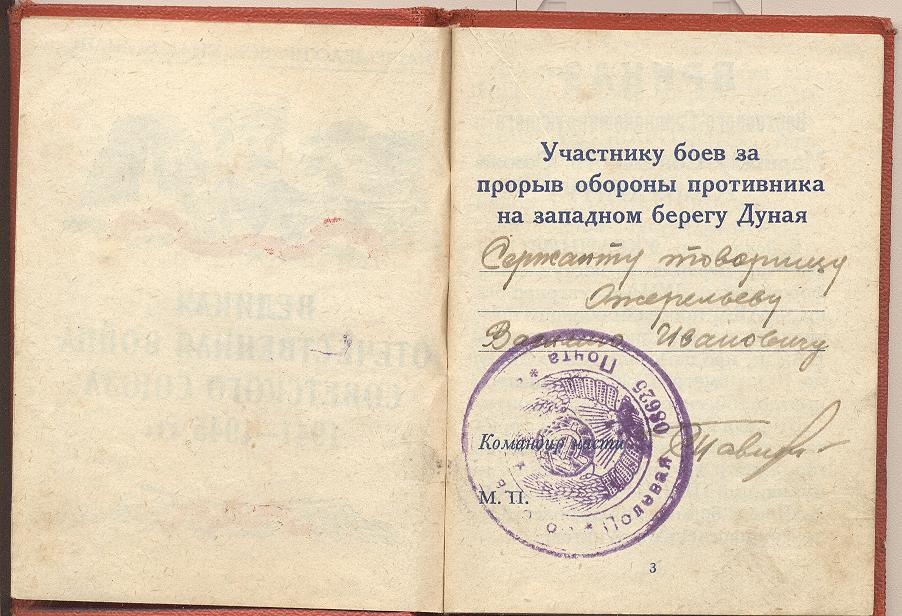 Участнику боев за
прорыв обороны противника
на западном берегу Дуная
Сержанту товарищу
Ожерельеву
Ивановичу
Полевая Почта
08625
Командир части
М. П.
3